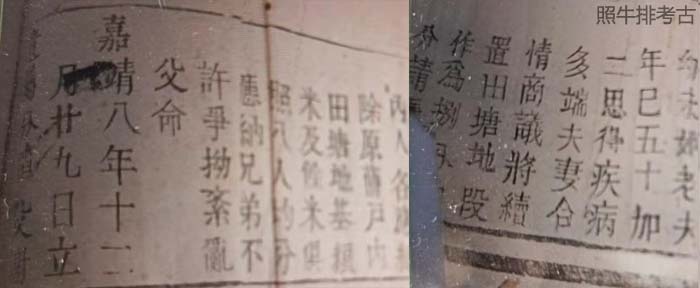 照牛排考古
幼未婚老夫
年巳五十加
二思得疾病
多端夫妻合
情商議將續
置田塘地段
作為捌
請
人各
除原舊戶內
田塘地基糧
米及餘米俱
照八人均分
應納兄弟不
許爭拗紊亂
父命
嘉靖八年十二
月廿九日立